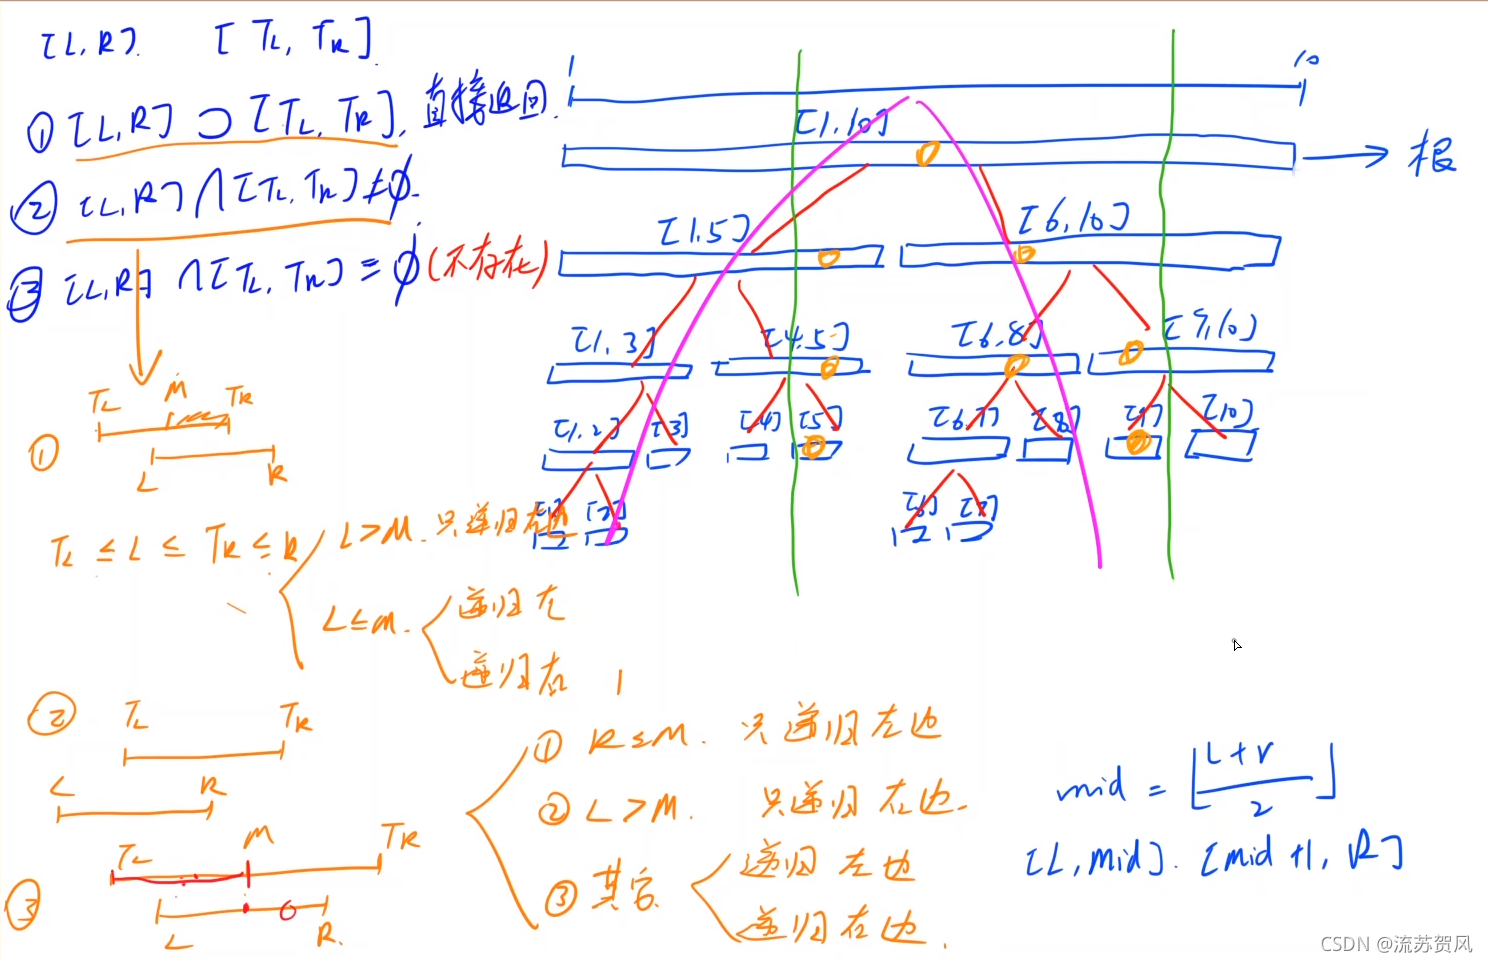 [L, R]. [TL, TR].
① [L, R] ⊃ [TL, TR], 直接返回.
② [L, R] ∩ [TL, TR] ≠ ∅.
③ [L, R] ∩ [TL, TR] = ∅ (不存在)
TL M TR
①
L R
TL ≤ L ≤ TR ≤ R
L > M. 只递归右边
L ≤ M.
递归左
递归右
② TL TR
L R
TL M TR
③
L R.
① R ≤ M. 只递归左边
② L > M. 只递归右边.
③ 其它
递归左边
递归右边.
1 10
[1, 10]
根
[1, 5] [6, 10]
[1, 3] [4, 5] [6, 8] [9, 10]
[1, 2] [3] [4] [5] [6, 7] [8] [9] [10]
[1] [2] [6] [7]
mid = ⌊(L + r)/2⌋
[L, mid]. [mid + 1, R]
CSDN @流苏贺风